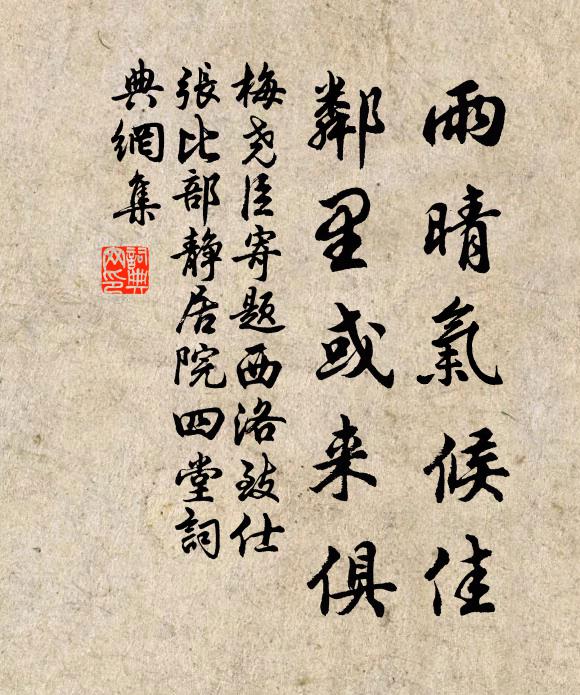 雨晴氣候佳
鄰里或来俱
梅尧臣寄题西洛致仕
張比部靜居院四堂詞
典網集
詞典
网印